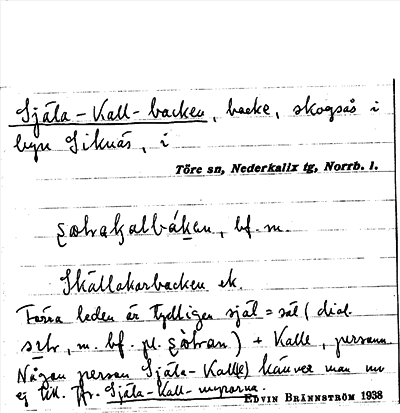 Själa-Kall-backen, backe, skogsås i
byn Siknäs, i
Töre sn, Nederkalix tg, Norrb. l.
bf. m.
Skällakarbacken ek.
Förra leden är tydligen själ = säl (dial.
m. bf. pl.) + Kalle, person.
Någon person Själa-Kall(e) känner man nu
ej till. Jfr. Själa-Kall-myrarna.
EDVIN BRÄNNSTRÖM 1938